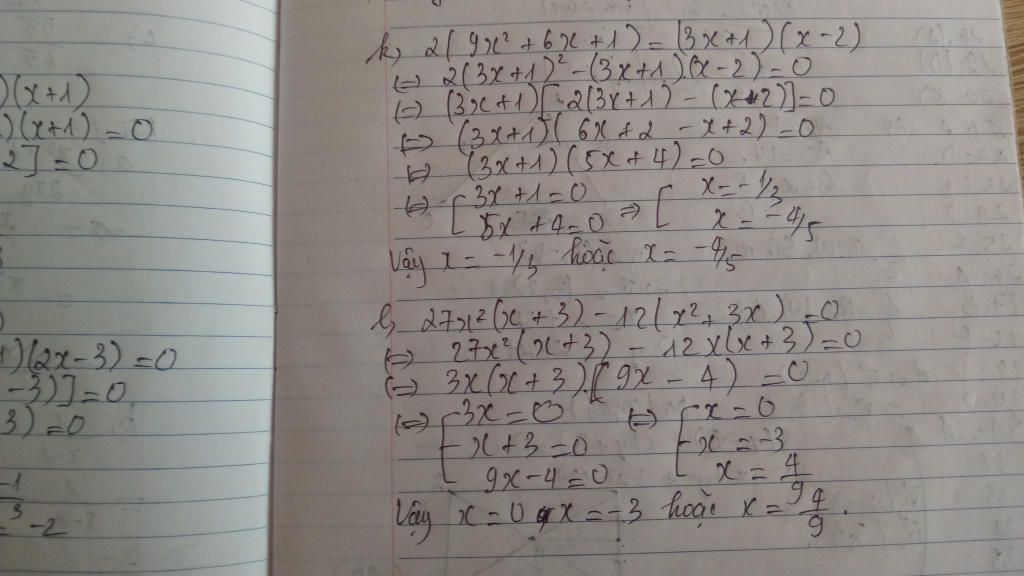 )(x+1)
)(x+1) = 0
2] = 0
1)(2x-3) = 0
-3)] = 0
3) = 0
-1
3
-2
k, 2(9x² + 6x + 1) = (3x+1)(x-2)
⇔ 2(3x+1)² - (3x+1)(x-2) = 0
⇔ (3x+1)[2(3x+1) - (x-2)] = 0
⇔ (3x+1)(6x+2 - x+2) = 0
⇔ (3x+1)(5x+4) = 0
⇔ [ 3x+1 = 0 ⇒ [ x = -1/3
5x + 4 = 0 x = -4/5
Vậy x = -1/3 hoặc x = -4/5
l, 27x²(x+3) - 12(x² + 3x) = 0
⇔ 27x²(x+3) - 12x(x+3) = 0
⇔ 3x(x+3)[9x - 4) = 0
⇔ [ 3x = 0 ⇔ [ x = 0
x + 3 = 0 x = -3
9x - 4 = 0 x = 4/9
Vậy x = 0, x = -3 hoặc x = 4/9.